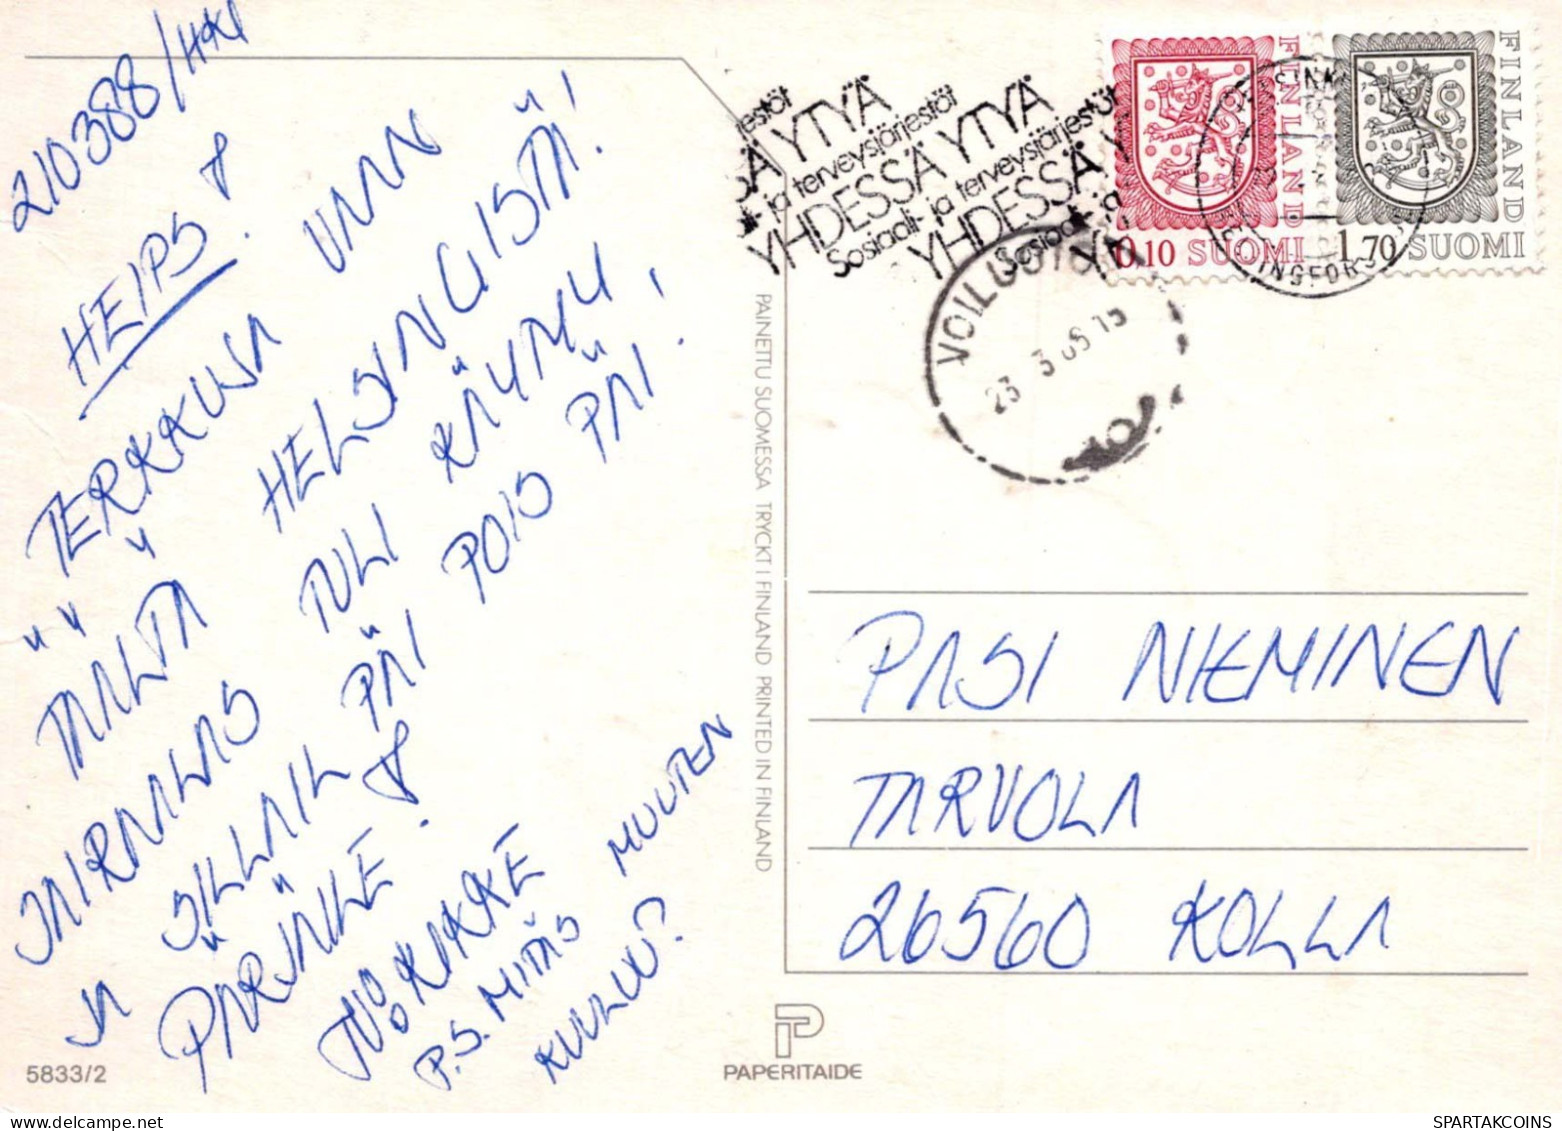 210388/HKI
HEIPS!
TERKKUJA VAAN
TÄÄLTÄ HELSINGISTÄ!
TULI KÄYMÄÄ
JA SILLAIL PÄI POIS PÄI!
PÄRJÄILE!
TV: KIKKE
P.S. MITÄS MUUTEN
KUULUU?
5833/2
PAINETTU SUOMESSA TRYCKT I FINLAND PRINTED IN FINLAND
PAPERITAIDE
YHDESSÄ YTYÄ
Sosiaali- ja terveysjärjestöt
YHDESSÄ YTYÄ
Sosiaali- ja terveysjärjestöt
YHDESSÄ
FINLAND
0,10 SUOMI
FINLAND
1,70 SUOMI
HELSINKI
HELSINGFORS
23 3 88 15
PASI NIEMINEN
TARVOLA
26560 KOLLA
SPARTAKCOINS.COM